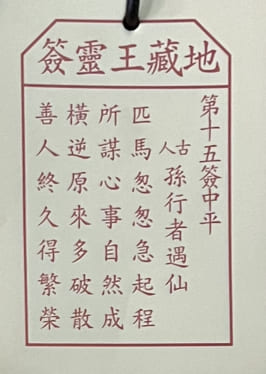 地藏王靈簽
第十五簽中平
古人孫行者遇仙
匹馬忽忽急起程
所謀心事自然成
橫逆原來多破散
善人終久得繁榮